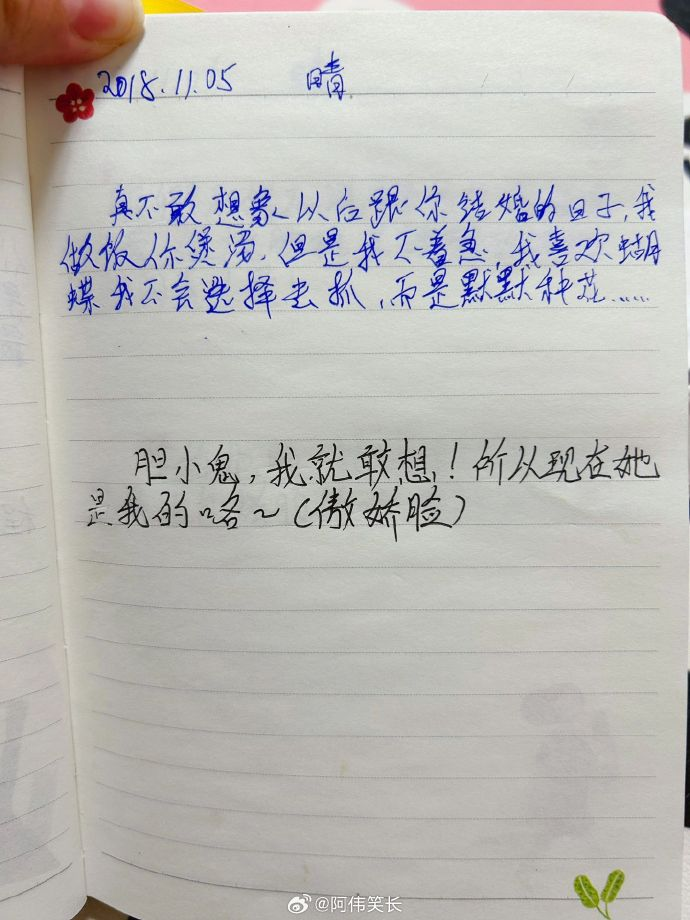 2018.11.05 晴
真不敢想象以后跟你结婚的日子,我
做饭你煲汤,但是我不着急,我喜欢蝴
蝶我不会选择去抓,而是默默种花……
胆小鬼,我就敢想!所以现在她
是我的咯~(傲娇脸)
@阿伟笑长